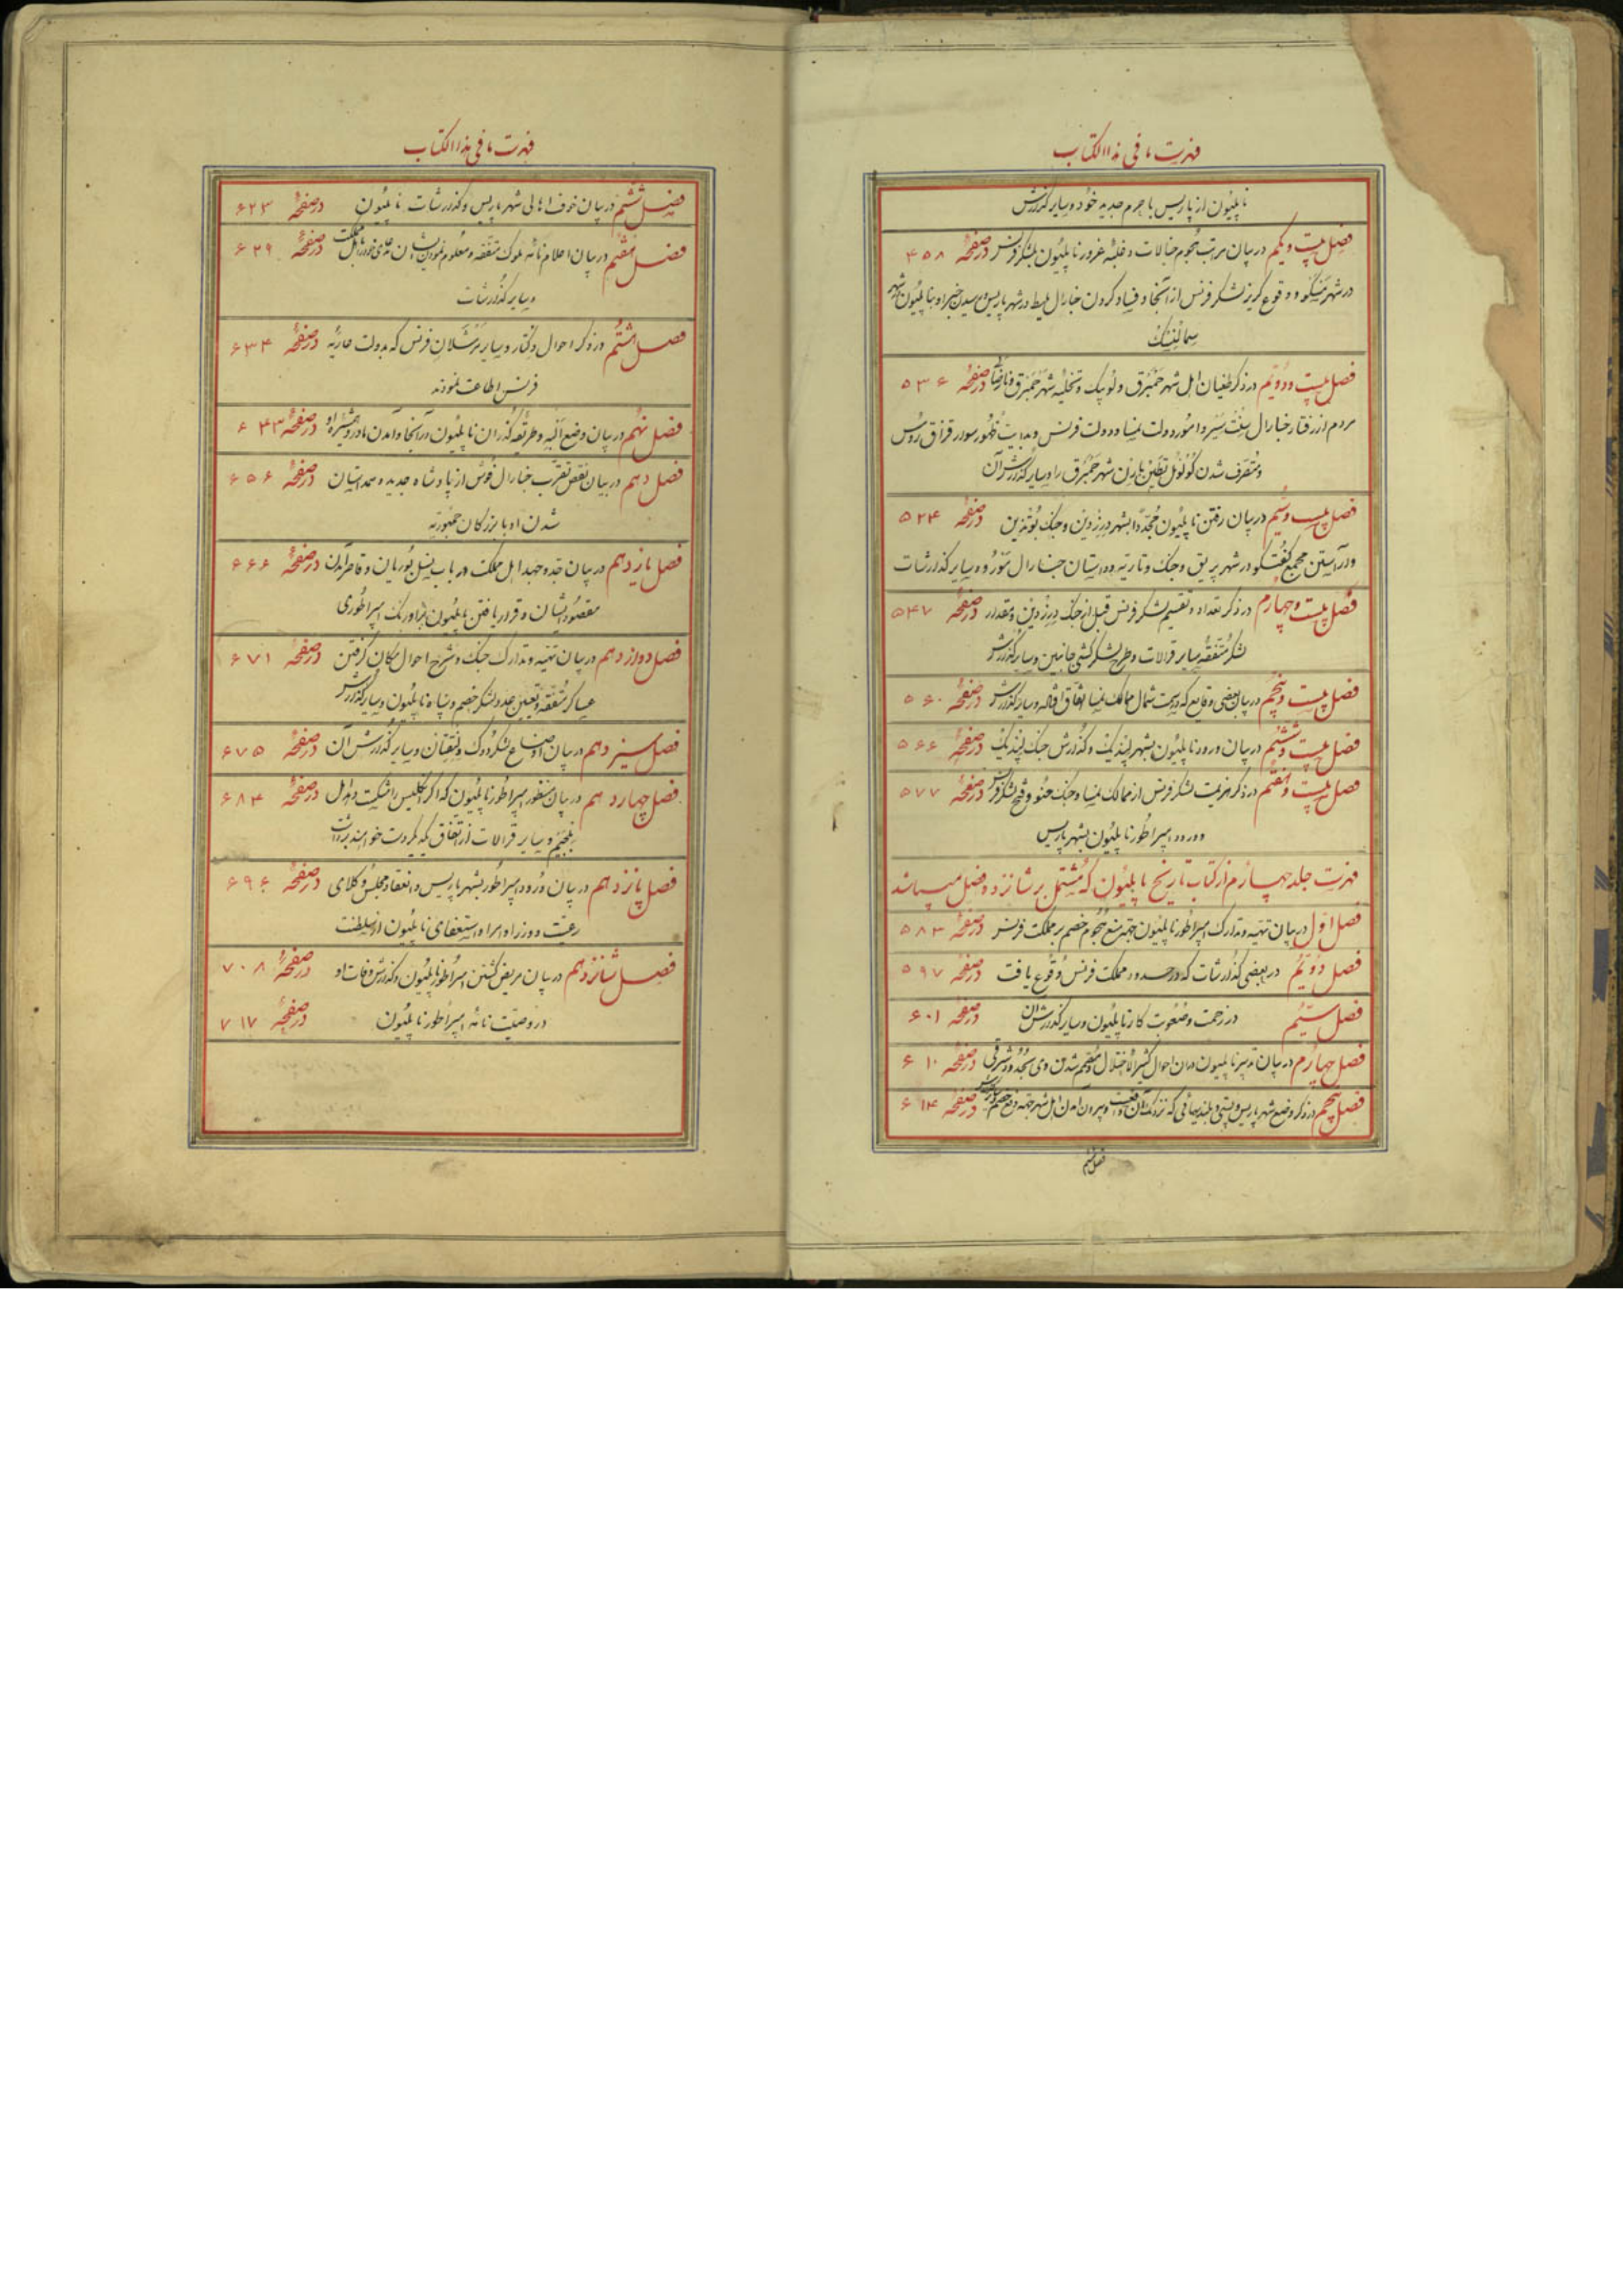 فهرست ما فی هذا الکتاب
ناپلیون از پاریس با حرم جدید خود و سایر گذارش
فصل بیست و یکم در بیان مرتبت هجوم خیالات و غلبه غرور ناپلیون بلشکر فرنس در صفحهٔ ۴۵۸
در شهر مسکو و وقوع گریز لشکر فرنس از آنجا و فساد کردن جنارال در شهر پاریس و رسیدن خبر او بناپلیون در شهر
سمالنسک
فصل بیست و دویم در ذکر طغیان اهل شهر حمبرق و لوبیک و تخلیه شهر حمبرق و نارضائی در صفحهٔ ۵۳۶
مردم از رفتار جنارال سنت سیر و امور دولت نمسا و دولت فرنس و بدایت ظهور سوار قزاق روس
و متصرف شدن کولونل تطین بارن شهر حمبرق را و سایر گذارش آن
فصل بیست و سیم در بیان رفتن ناپلیون مجددا بشهر درزدین و جنک بوتذین در صفحهٔ ۵۲۴
و در آراستن مجمع گفتگو در شهر پریق و جنک و تاریته و داستان جنارال مورو و سایر گذارشات
فصل بیست و چهارم در ذکر تعداد و تقسیم لشکر فرنس قبل از جنک درزدین و مقدار در صفحهٔ ۵۴۷
لشکر متفقه سایر قرالات و طرح لشکر کشی جانبین و سایر گذارش
فصل بیست و پنجم در بیان بعضی وقایع که در سمت شمال ممالک نمسا اتفاق افتاد و سایر گذارش در صفحهٔ ۵۶۰
فصل بیست و ششم در بیان ورود ناپلیون بشهر لیپزیک و گذارش جنک لیپزیک در صفحهٔ ۵۶۶
فصل بیست و هفتم در ذکر هزیمت لشکر فرنس از ممالک نمسا و جنک حنو و فتح لشکر فرنس در صفحهٔ ۵۷۷
و ورود امپراطور ناپلیون بشهر پاریس
فهرست جلد چهارم از کتاب تاریخ ناپلیون که مشتمل بر شانزده فصل میباشد
فصل اول در بیان تهیه و تدارک امپراطور ناپلیون جهة منع هجوم خصم بر مملکت فرنس در صفحهٔ ۵۸۳
فصل دویم در بعضی گذارشات که در حدود مملکت فرنس وقوع یافت در صفحهٔ ۵۹۷
فصل سیم در زحمت و صعوبت کار ناپلیون و سایر گذارش آن در صفحهٔ ۶۰۱
فصل چهارم در بیان تدبیر ناپلیون در آن احوال کثیر الاختلال و مصمم شدن وی بحدود شرقی در صفحهٔ ۶۱۰
فصل پنجم در ذکر وضع شهر پاریس و پستی و بلندیهائی که نزدیک آن واقعست و بیرون آمدن اهل شهر جهة دفع خصم در صفحهٔ ۶۱۴
فصل ششم
فهرست ما فی هذا الکتاب
فصل ششم در بیان خوف اهالی شهر پاریس و گذارشات ناپلیون در صفحهٔ ۶۲۳
فصل هفتم در بیان اعلام نامه ملوک متفقه و معلوم نمودن ایشان مدعای خود را باهل مملکت در صفحهٔ ۶۲۹
و سایر گذارشات
فصل هشتم در ذکر احوال و گفتار و سایر مرشلان فرنس که بدولت عاریه در صفحهٔ ۶۳۴
فرنس اطاعت نمودند
فصل نهم در بیان وضع البه و طریقه گذران ناپلیون در آنجا و آمدن مادر و همشیره او در صفحهٔ ۶۴۳
فصل دهم در بیان نقض تقرب جنارال فوش از پادشاه جدید و همداستان در صفحهٔ ۶۵۶
شدن او با بزرکان جمهوریه
فصل یازدهم در بیان جد و جهد اهل مملکت در باب نسل بوربان و قاصر آمدن در صفحهٔ ۶۶۶
مقصود ایشان و قرار یافتن ناپلیون بر اورنک امپراطوری
فصل دوازدهم در بیان تهیه و تدارک جنک و شرح احوال مکان گرفتن در صفحهٔ ۶۷۱
عساکر متفقه و تعیین عدد لشکر خصم و سپاه ناپلیون و سایر گذارش
فصل سیزدهم در بیان اوضاع لشکر دوک ولنقتان و سایر گذارش آن در صفحهٔ ۶۷۵
فصل چهاردهم در بیان منظور امپراطور ناپلیون که اگر انگلیس را شکست دهد اهل در صفحهٔ ۶۸۴
بلجیم و سایر قرالات از اتفاق یکدیگر دست خواهند برداشت
فصل پانزدهم در بیان ورود امپراطور بشهر پاریس و انعقاد مجلس وکلای در صفحهٔ ۶۹۶
رعیت و وزرا و امرا و استعفای ناپلیون از سلطنت
فصل شانزدهم در بیان مریض گشتن امپراطور ناپلیون و گذارش وفات او در صفحهٔ ۷۰۸
در وصیت نامهٔ امپراطور ناپلیون در صفحهٔ ۷۱۷